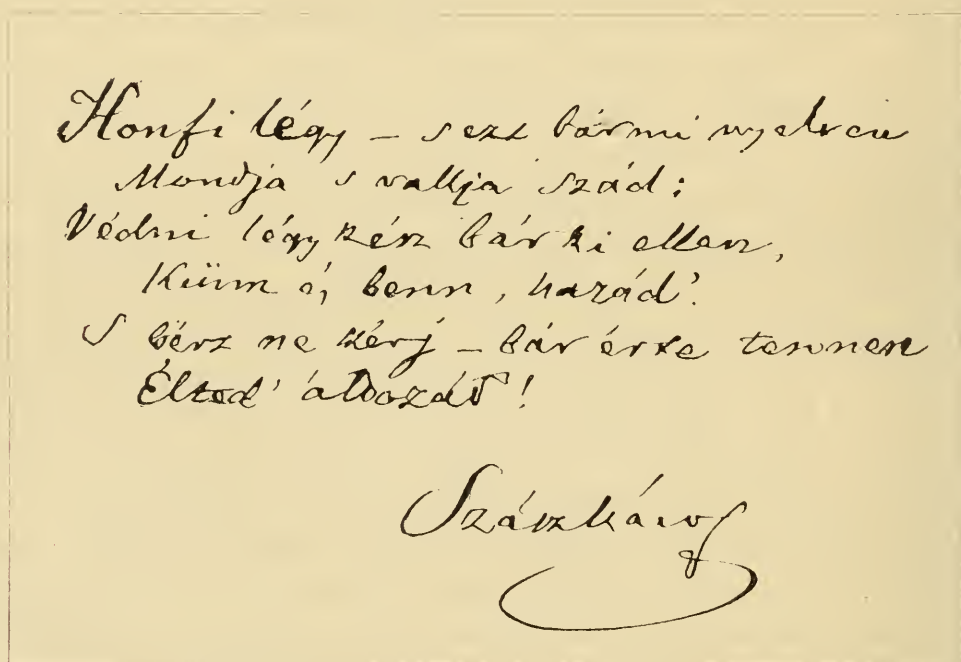 Honfi légy – s ezt bármi nyelven
Mondja s vallja szád;
Védni légy kész bárki ellen,
Künn és benn, hazád'.
S bért ne kérj – bár érte tennen
Élted' áldozád!
Szász Károly